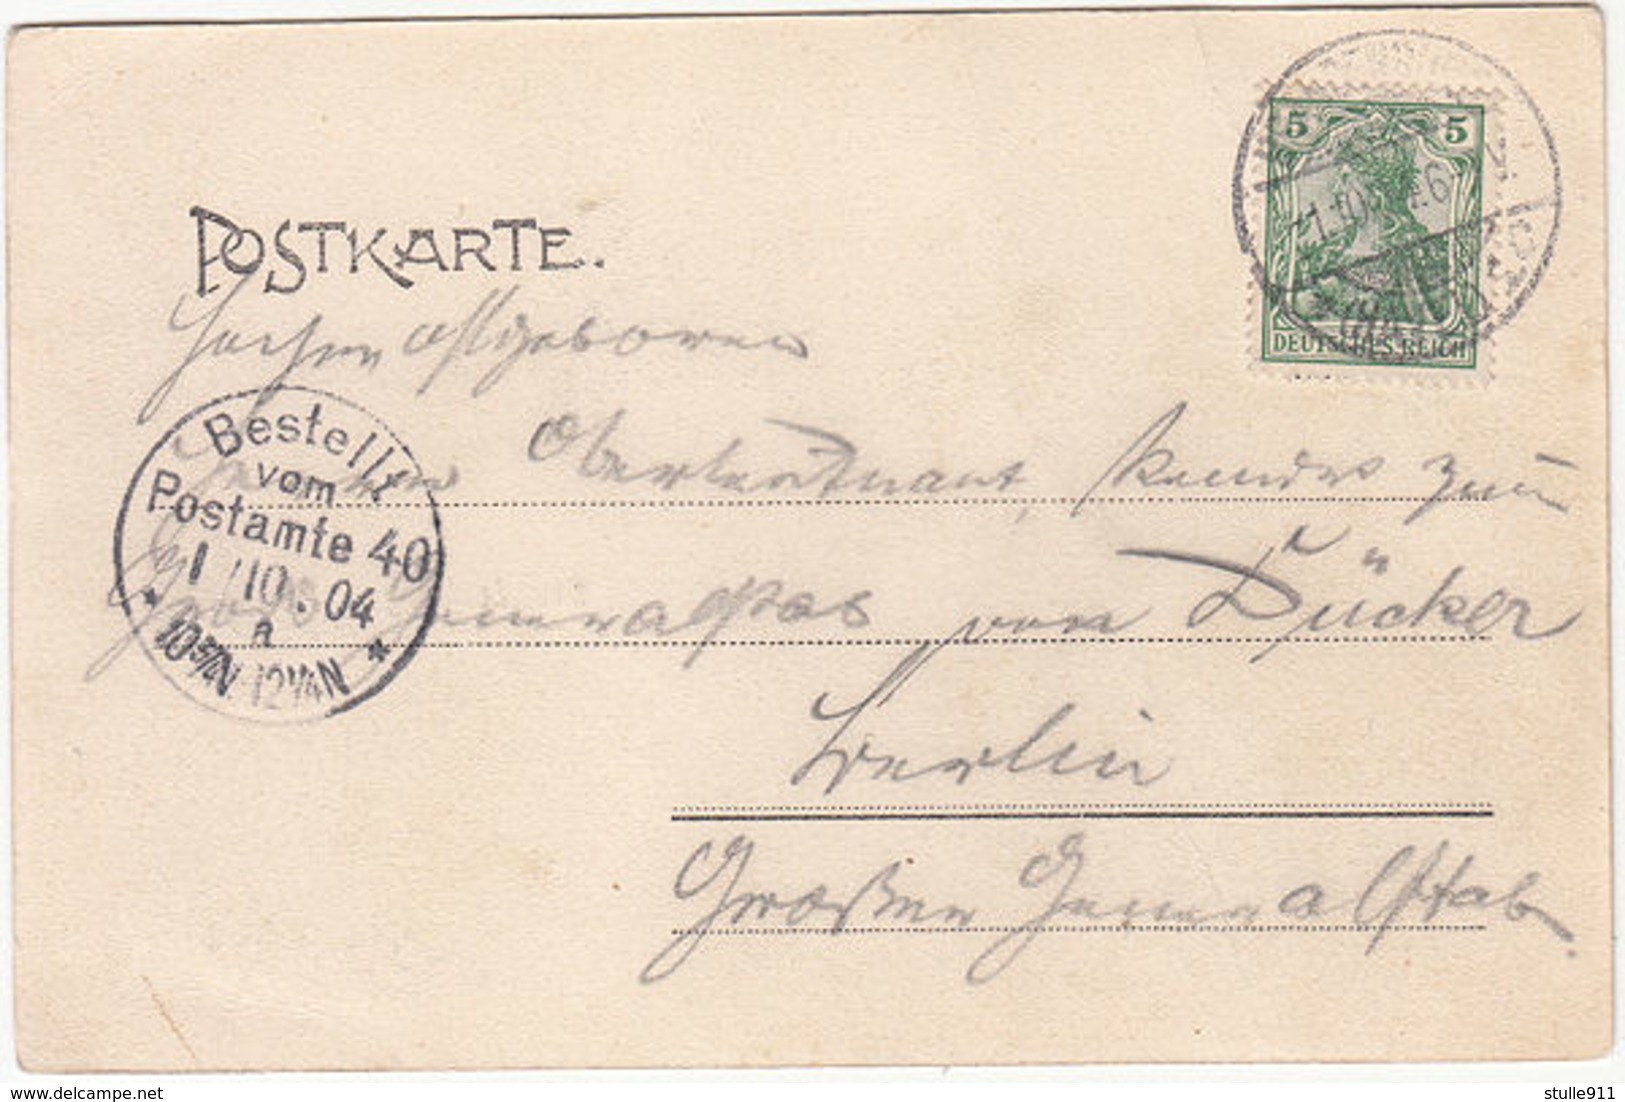 POSTKARTE.
5 5
DEUTSCHES REICH
Hochwohlgeboren
Herrn Oberleutnant, kommdr zum
Großen Generalstab von Dücker
Bestellt
vom
Postamte 40
1 /10. 04
* 10¾N-12¼N *
Berlin
Großer Generalstab.
https://www.delcampe.net
stulle911